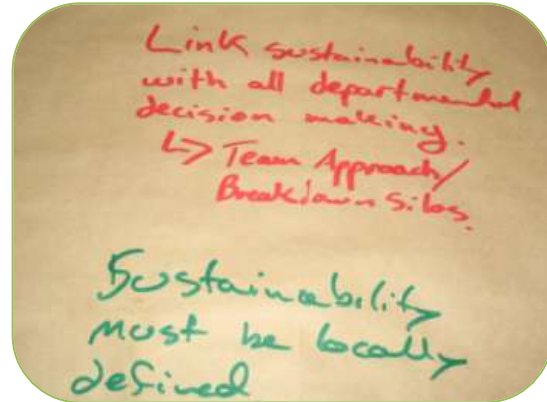 Link sustainability
with all departmental
decision making.
↳ Team Approach/
Breakdown Silos.
Sustainability
must be locally
defined